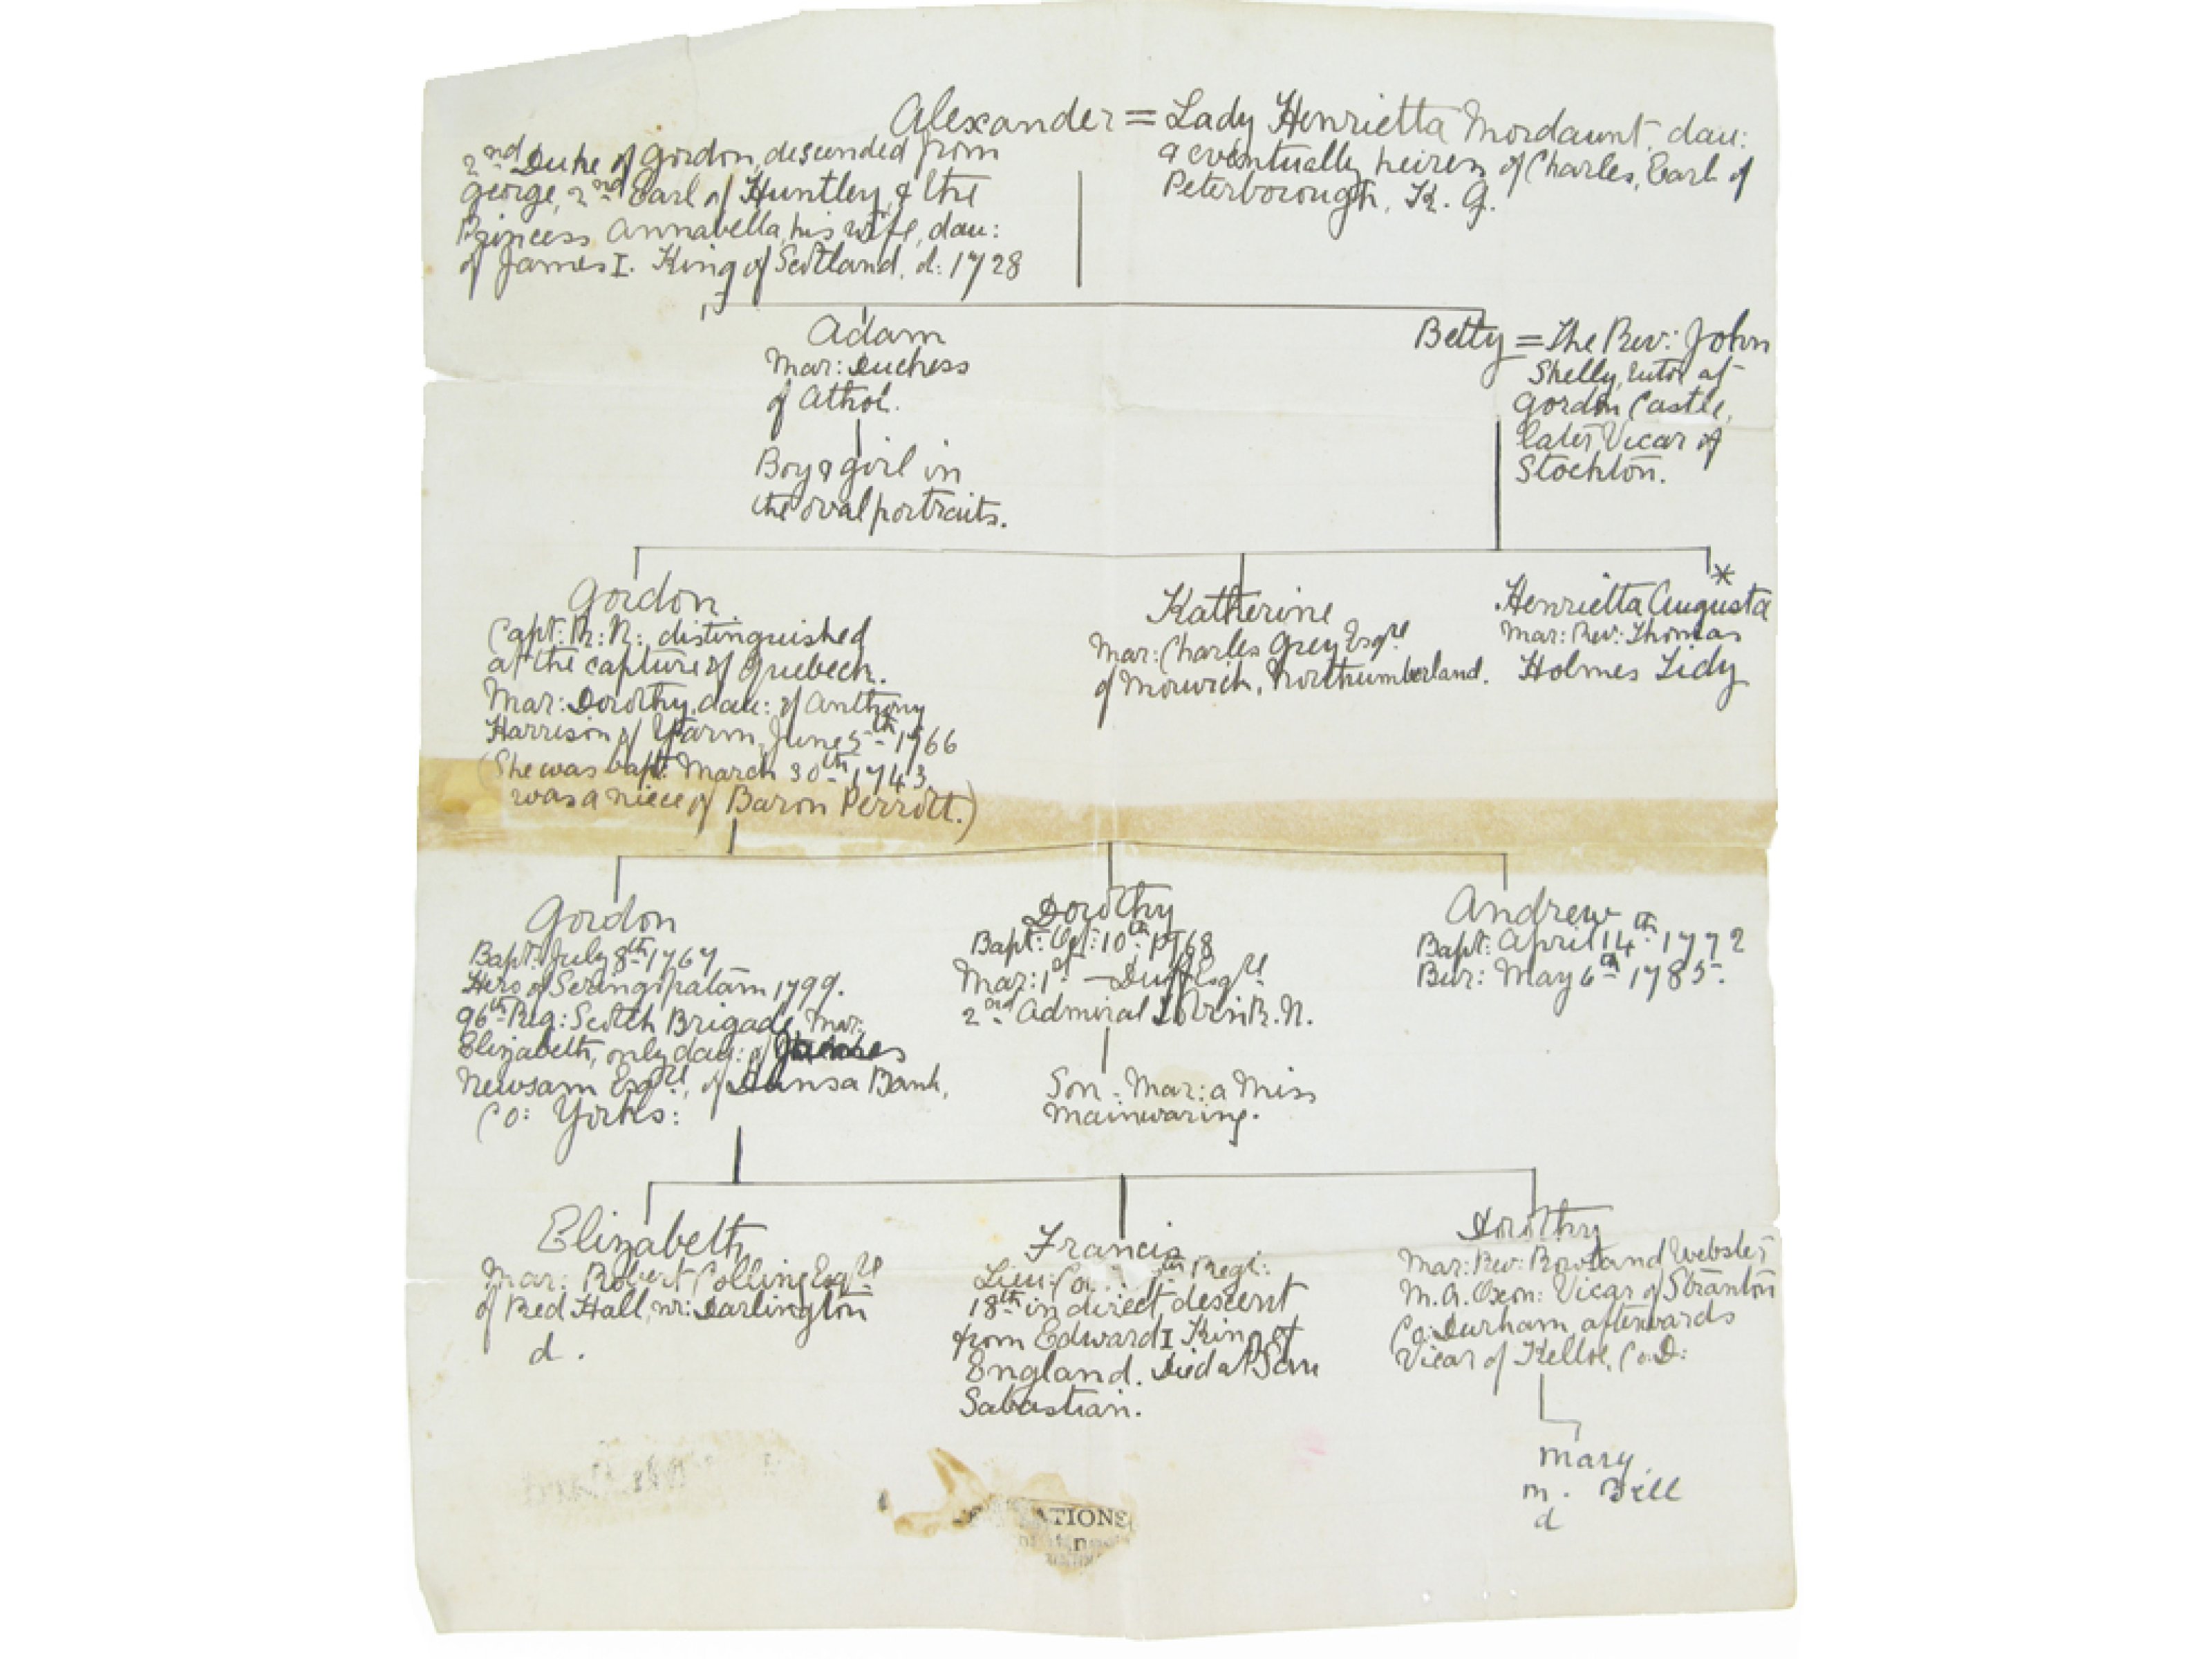 Alexander = Lady Henrietta Mordaunt, dau:
2nd Duke of Gordon, descended from
George, 2nd Earl of Huntley, & the
Princess Annabella, his wife, dau:
of James I. King of Scotland, d: 1728
& eventually heiress of Charles, Earl of
Peterborough, K. G.
Adam
Mar: Duchess
of Athol.
Boy & girl in
the oval portraits.
Betty = The Rev: John
Shelly, tutor at
Gordon Castle,
later Vicar of
Stockton.
Gordon.
Capt: R: N:, distinguished
at the capture of Quebeck.
Mar: Dorothy, dau: of Anthony
Harrison of Yarm, June 5th 1766
(She was bapt: March 30th 1743.
was a niece of Baron Perrott.)
Katherine
Mar: Charles Grey Esqre
of Morwich, Northumberland.
Henrietta Augusta *
Mar: Rev: Thomas
Holmes Tidy
Gordon
Bapt: July 8th 1767
Hero of Seringapatam 1799.
96th Reg: Scotch Brigade, Mar:
Elizabeth, only dau: of
Newsam Esqre, of Dunsa Bank,
Co: Yorks:
Dorothy
Bapt: Oct: 10th 1768
Mar: 1st — Duff Esqre
2nd Admiral R. N.
Son - Mar: a Miss
Mainwaring.
Andrew
Bapt: April 14th 1772
Bur: May 6th 1785.
Elizabeth
Mar: Robert Colling Esqre
of Red Hall, nr: Darlington
d.
Francis
Lieu: Co... th Regt:
18th in direct descent
from Edward I King of
England. Died at San
Sabastian.
Dorothy
Mar: Rev: Rowland Webster
M. A. Oxon: Vicar of Stranton
Co: Durham afterwards
Vicar of Kelloe, Co: D:
Mary.
m. Bell
d
ATIONS